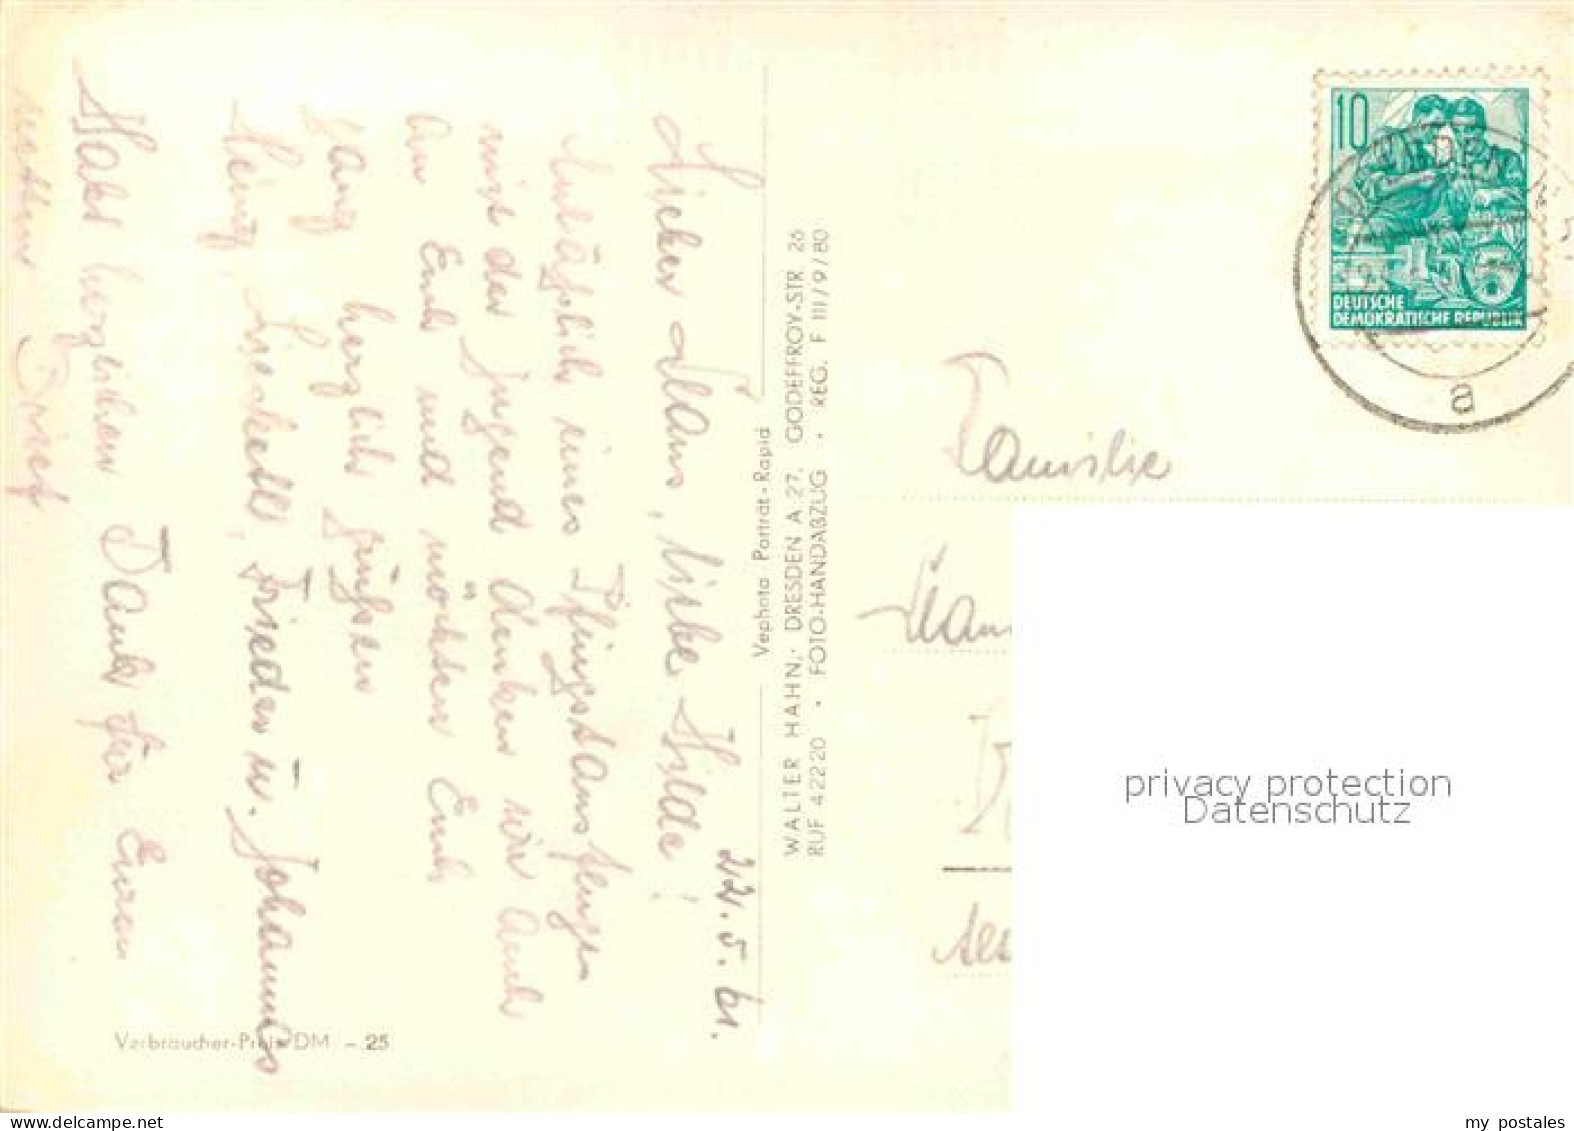 22.5.61.
Lieber Hans, liebe Hilde!
Anläßlich eines Pfingstausfluges
mit der Jugend denken wir auch
an Euch und möchten Euch
ganz herzlich grüßen
Heinz, Frieder u. Johannes
Habt herzlichen Dank für Euren
netten Brief
Verbraucher-Preis DM -.25
Vephota Porträt-Rapid
WALTER HAHN, DRESDEN A 27, GODEFFROY-STR. 26
RUF 42220 • FOTO-HANDABZUG • REG. F III/9/80
10
DEUTSCHE
DEMOKRATISCHE REPUBLIK
a
Familie
privacy protection
Datenschutz
my postales